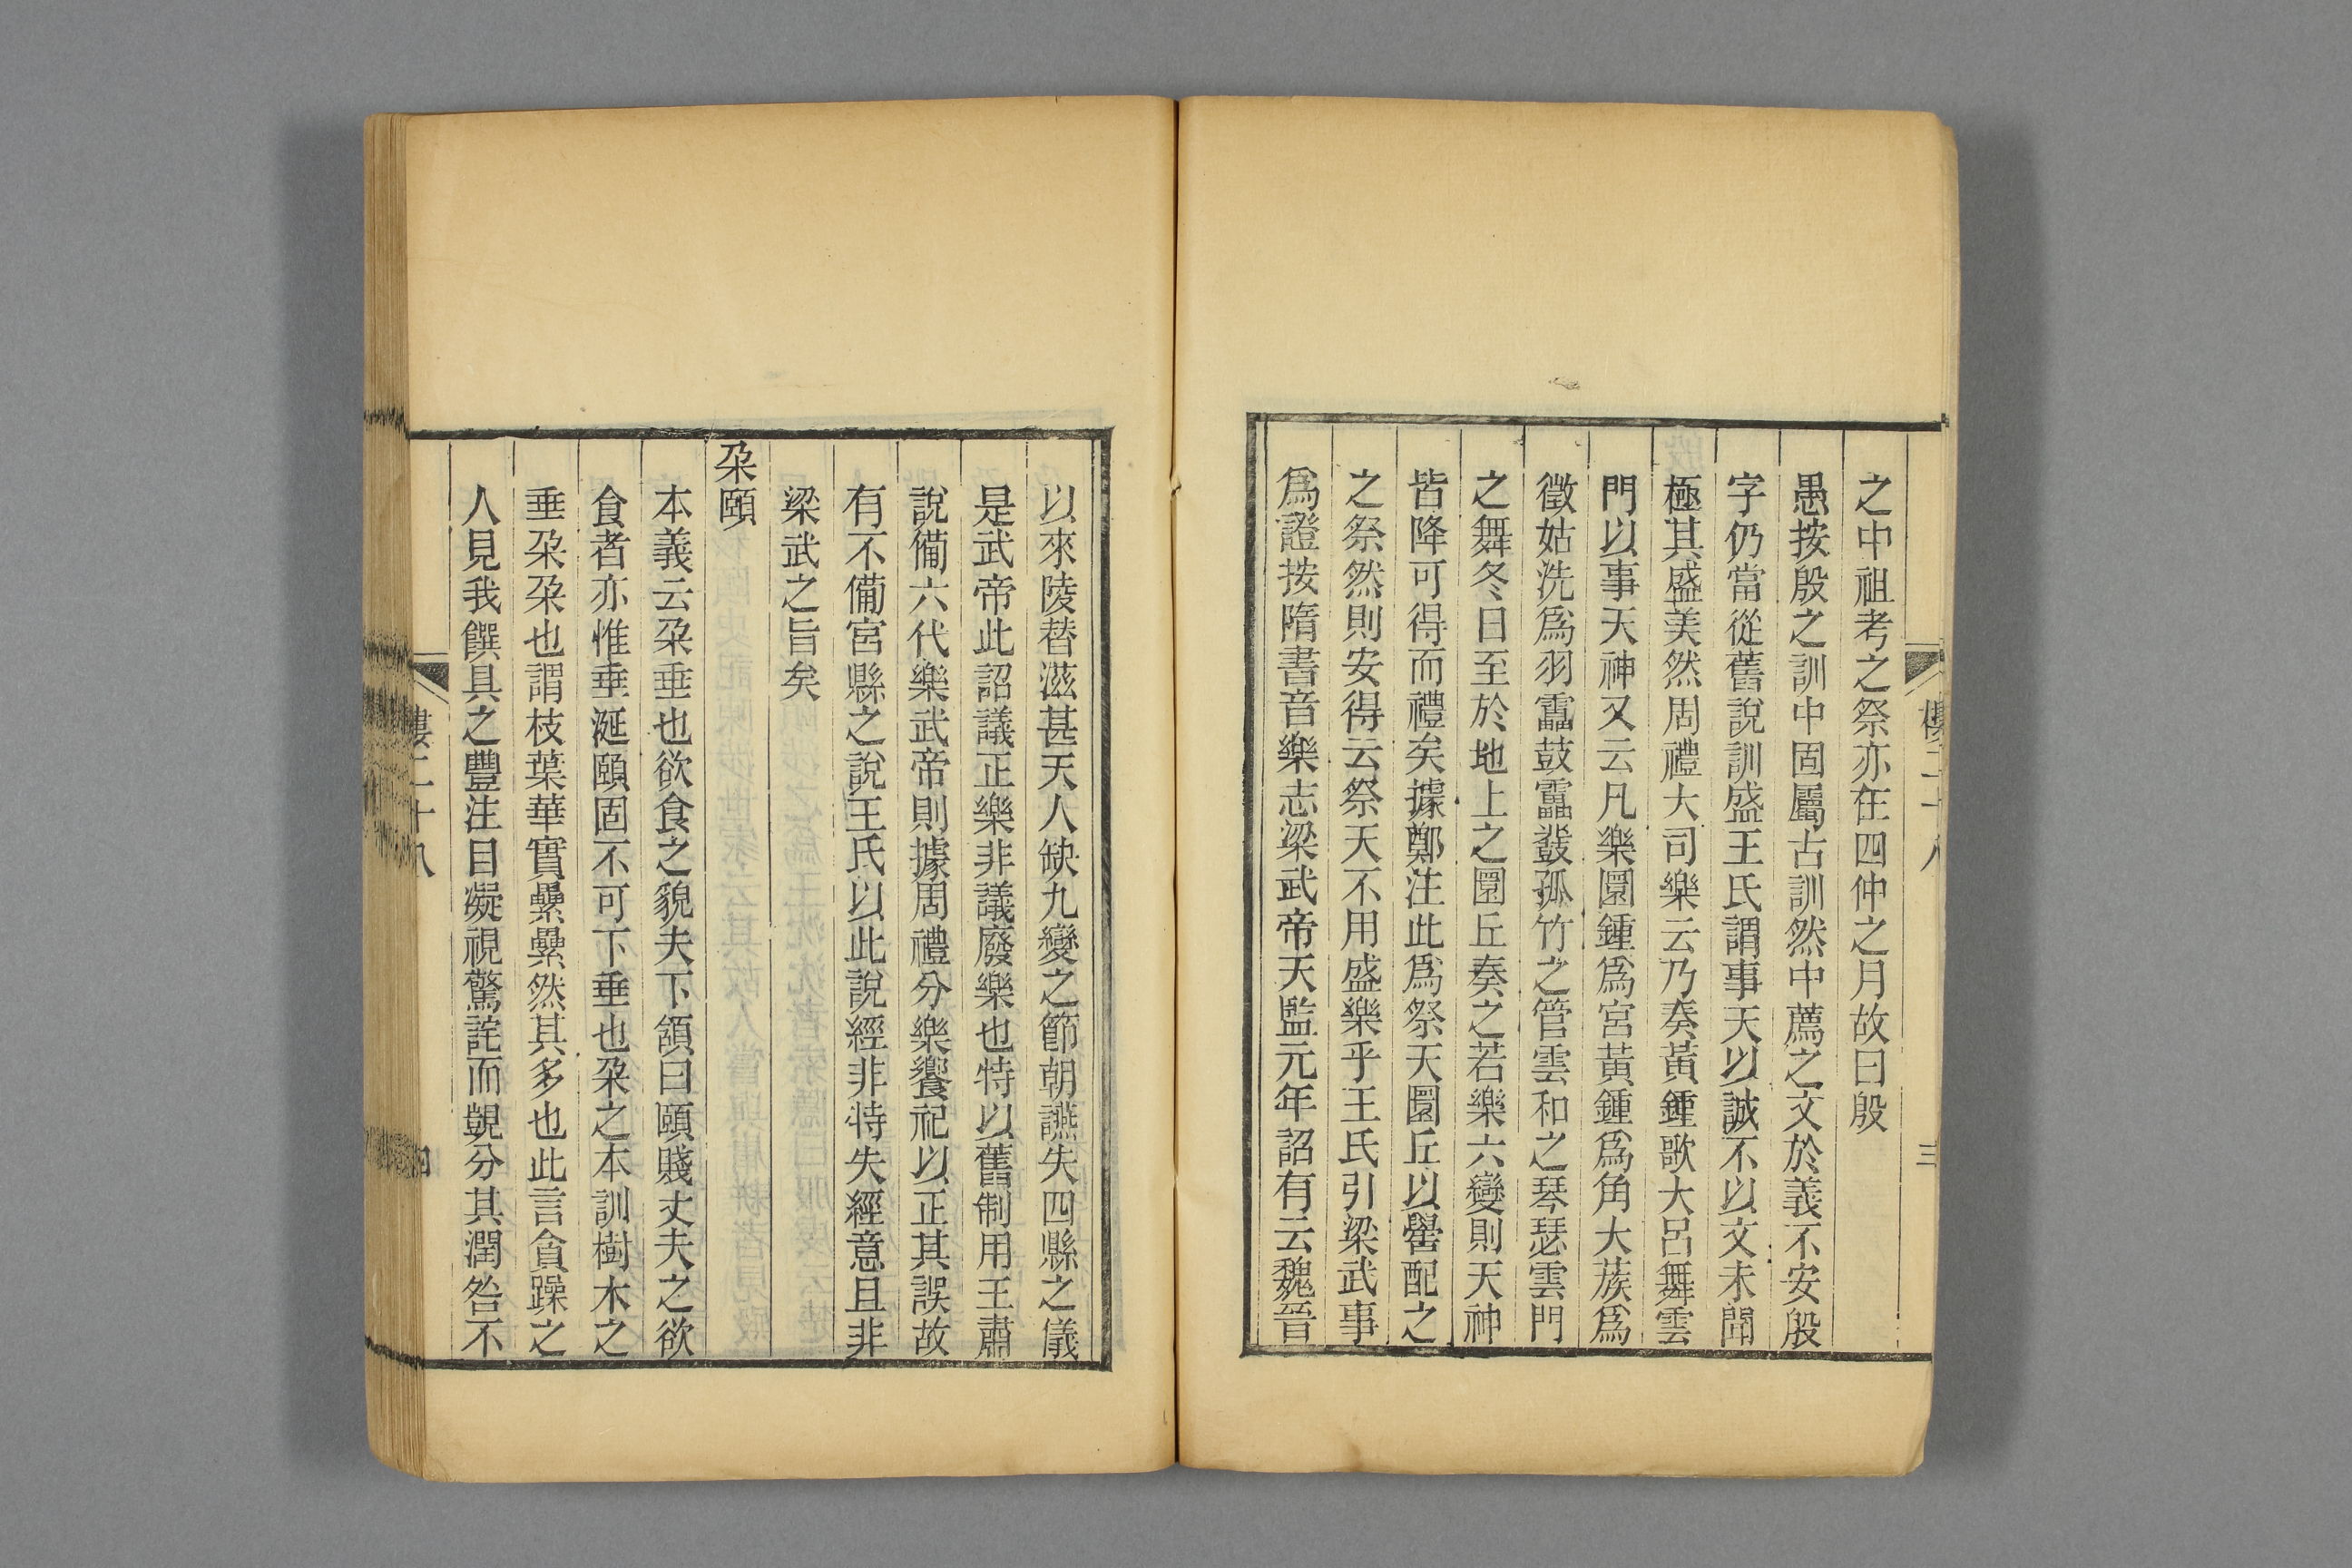 之中祖考之祭亦在四仲之月故曰殷
愚按殷之訓中固屬古訓然中薦之文於義不安殷
字仍當從舊說訓盛王氏謂事天以誠不以文未聞
極其盛美然周禮大司樂云乃奏黃鍾歌大呂舞雲
門以事天神又云凡樂圜鍾爲宮黃鍾爲角大蔟爲
徵姑洗爲羽靁鼓靁鼗孤竹之管雲和之琴瑟雲門
之舞冬日至於地上之圜丘奏之若樂六變則天神
皆降可得而禮矣據鄭注此爲祭天圜丘以嚳配之
之祭然則安得云祭天不用盛樂乎王氏引梁武事
爲證按隋書音樂志梁武帝天監元年詔有云魏晉
以來陵替滋甚天人缺九變之節朝讌失四縣之儀
是武帝此詔議正樂非議廢樂也特以舊制用王肅
說備六代樂武帝則據周禮分樂饗祀以正其誤故
有不備宮縣之說王氏以此說經非特失經意且非
梁武之旨矣
朶頤
本義云朶垂也欲食之貌夫下頷曰頤賤丈夫之欲
食者亦惟垂涎頤固不可下垂也朶之本訓樹木之
垂朶朶也謂枝葉華實纍纍然其多也此言貪躁之
人見我饌具之豐注目凝視驚詫而覬分其潤咎不
樓二十八
四